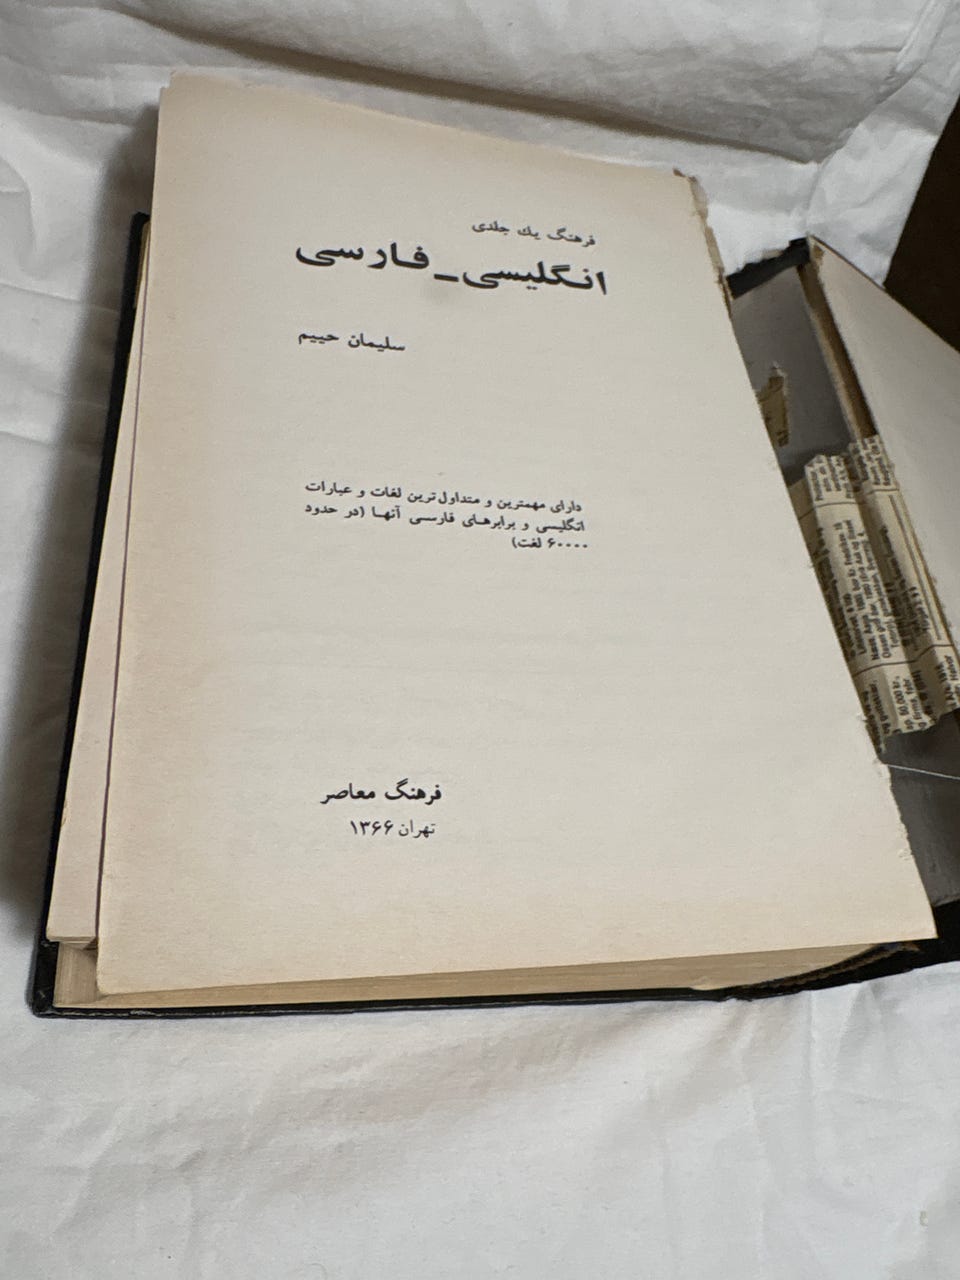 فرهنگ یك جلدی
انگلیسی ـ فارسی
سلیمان حییم
دارای مهمترین و متداول‌ترین لغات و عبارات
انگلیسی و برابرهای فارسی آنها (در حدود
۶۰۰۰۰ لغت)
فرهنگ معاصر
تهران ۱۳۶۶